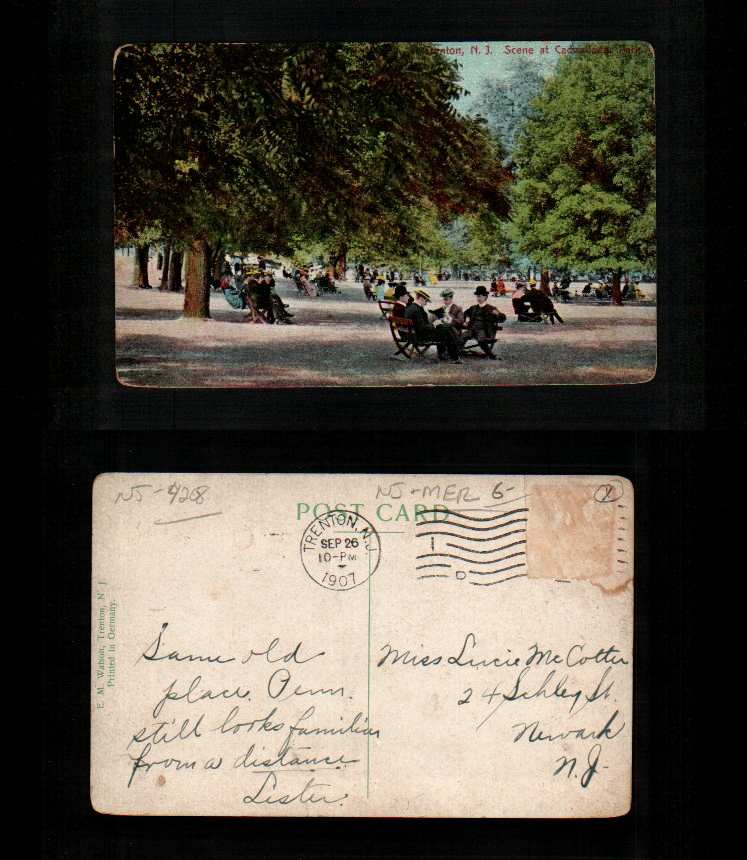 Trenton, N. J. Scene at Cadwalader Park
NJ-4208
NJ-MER 6-
POST CARD
TRENTON, N.J.
SEP 26
10-PM
1907
1
D
E. M. Watson, Trenton, N. J.
Printed in Germany.
Same old
place. Penn.
still looks familiar
from a distance
Lister.
Miss Lucie McCotter
24 Schley St.
Newark
N.J.